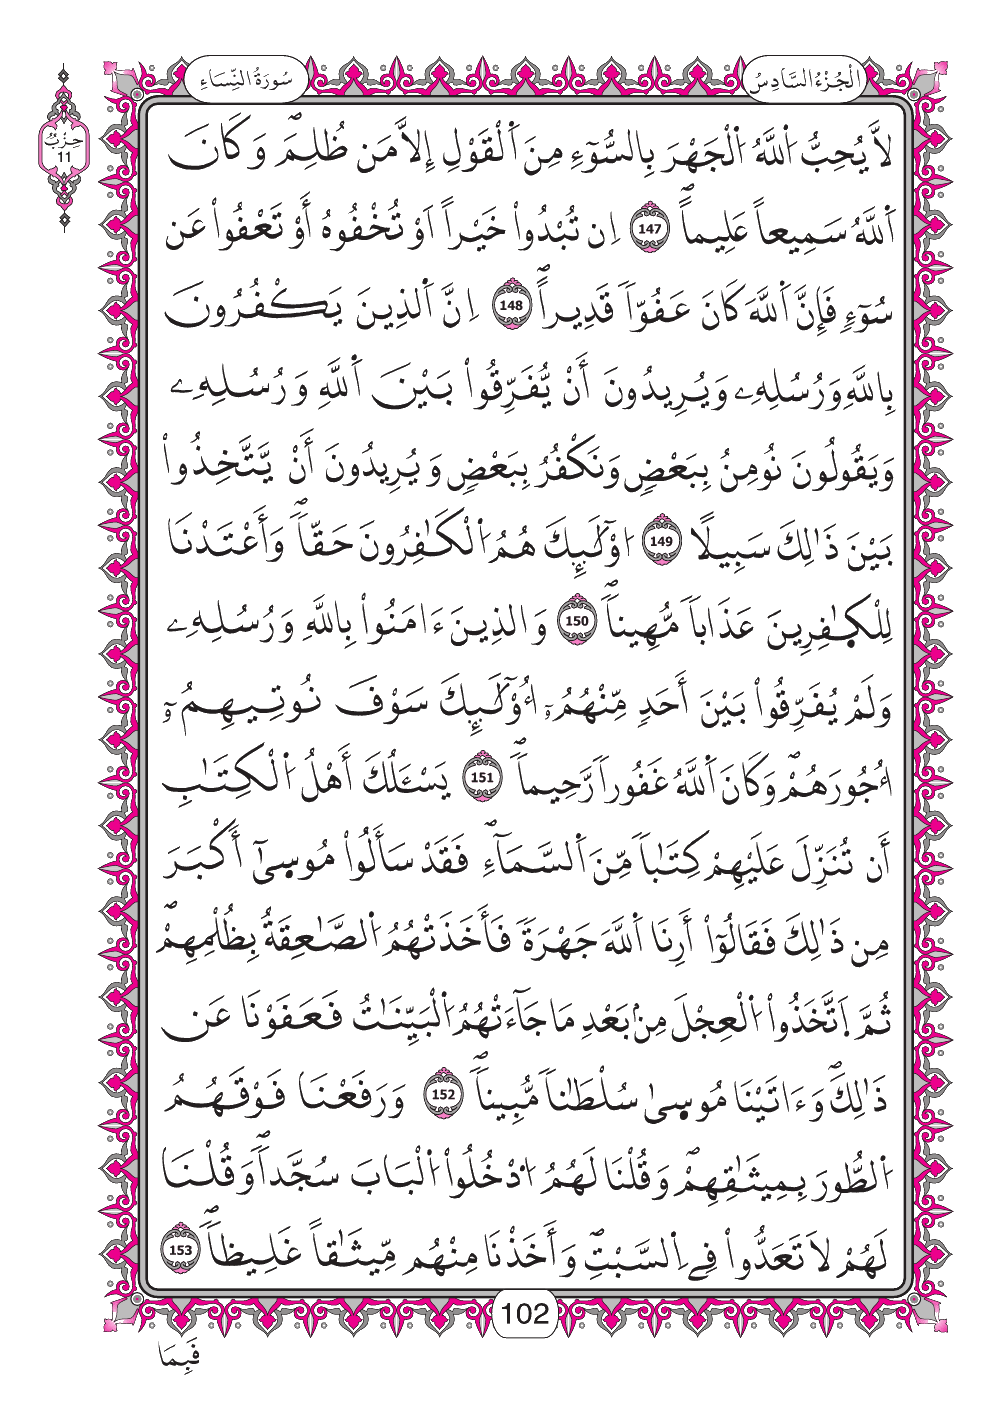 اَ۬لْجُزْءُ السَّادِسُ
سُورَةُ النِّسَاءِ
حِزْبٌ
11
لَّا يُحِبُّ اُ۬للَّهُ اُ۬لْجَهْرَ بِالسُّوٓءِ مِنَ اَ۬لْقَوْلِ إِلَّا مَن ظُلِمَۖ وَكَانَ
اَ۬للَّهُ سَمِيعاً عَلِيماًۖ 147 اِن تُبْدُواْ خَيْراً اَوْ تُخْفُوهُ أَوْ تَعْفُواْ عَن
سُوٓءٖ فَإِنَّ اَ۬للَّهَ كَانَ عَفُوّاٗ قَدِيراًۖ 148 اِنَّ اَ۬لذِينَ يَكْفُرُونَ
بِاللَّهِ وَرُسُلِهِۦ وَيُرِيدُونَ أَنْ يُّفَرِّقُواْ بَيْنَ اَ۬للَّهِ وَرُسُلِهِۦ
وَيَقُولُونَ نُومِنُ بِبَعْضٖ وَنَكْفُرُ بِبَعْضٖ وَيُرِيدُونَ أَنْ يَّتَّخِذُواْ
بَيْنَ ذَٰلِكَ سَبِيلًا 149 اُوْلَٰٓئِكَ هُمُ اُ۬لْكَٰفِرُونَ حَقّاٗۖ وَأَعْتَدْنَا
لِلْكٰ۪فِرِينَ عَذَاباٗ مُّهِيناٗۖ 150 وَالذِينَ ءَامَنُواْ بِاللَّهِ وَرُسُلِهِۦ
وَلَمْ يُفَرِّقُواْ بَيْنَ أَحَدٖ مِّنْهُمُۥٓ أُوْلَٰٓئِكَ سَوْفَ نُوتِيهِمُۥٓ
أُجُورَهُمْۖ وَكَانَ اَ۬للَّهُ غَفُوراٗ رَّحِيماٗۖ 151 يَسْـَٔلُكَ أَهْلُ اُ۬لْكِتَٰبِ
أَن تُنَزِّلَ عَلَيْهِمْ كِتَٰباٗ مِّنَ اَ۬لسَّمَآءِۖ فَقَدْ سَأَلُواْ مُوس۪ىٰٓ أَكْبَرَ
مِن ذَٰلِكَ فَقَالُوٓاْ أَرِنَا اَ۬للَّهَ جَهْرَةٗ فَأَخَذَتْهُمُ اُ۬لصَّٰعِقَةُ بِظُلْمِهِمْۖ
ثُمَّ اَ۪تَّخَذُواْ اُ۬لْعِجْلَ مِنۢ بَعْدِ مَا جَآءَتْهُمُ اُ۬لْبَيِّنَٰتُ فَعَفَوْنَا عَن
ذَٰلِكَۖ وَءَاتَيْنَا مُوس۪ىٰ سُلْطَٰناٗ مُّبِيناٗۖ 152 وَرَفَعْنَا فَوْقَهُمُ
اُ۬لطُّورَ بِمِيثَٰقِهِمْۖ وَقُلْنَا لَهُمُ اُ۟دْخُلُواْ اُ۬لْبَابَ سُجَّداٗۖ وَقُلْنَا
لَهُمْ لَا تَعَدُّواْ فِے اِ۬لسَّبْتِۖ وَأَخَذْنَا مِنْهُم مِّيثَٰقاً غَلِيظاٗۖ 153
102
فَبِمَا